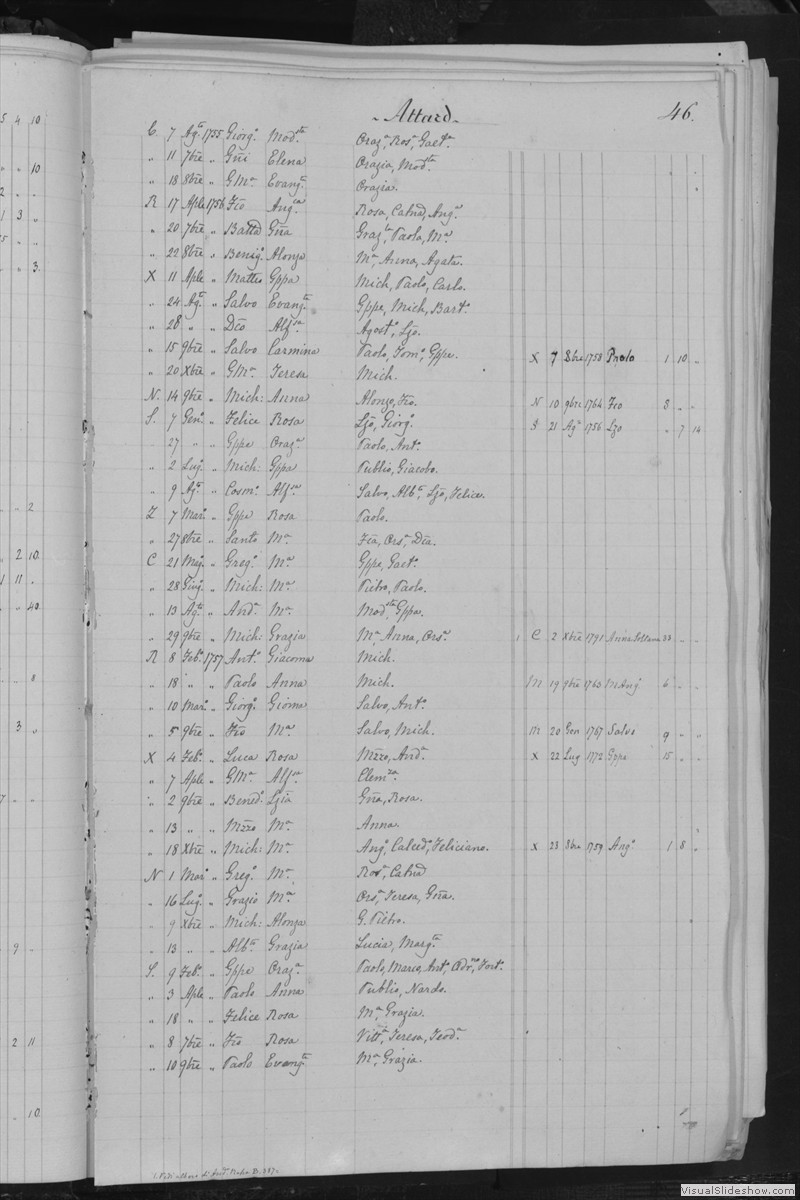 Attard
46.
C. 7 Ag.to 1755 Giorg.o Mod.sta Oraz.a, Ros.a, Gaet.a
" 11 7bre " Gñi Elena Orazia, Mod.ta
" 18 8bre " G.M.a Evang.ta Orazia.
R 17 Aple 1756 Fĩo Ang.ca Rosa, Catnã, Ang.a
" 20 7bre " Battã Gña Graz.la Paola, M.a
" 22 8bre " Benig.o Alonza M.a, Anna, Agata.
X 11 Aple " Matteo Gppa Mich, Paolo, Carlo.
" 24 Ag.to " Salvo Evang.ta Gppe, Mich, Bart.o
" 28 " " Dẽo Alf.sa Agost.o, Lzõ.
" 15 9bre " Salvo Carmina Paolo, Tom.o, Gppe. X 7 8bre 1758 Paolo 1 10 "
" 20 Xbre " G.M.a Teresa Mich.
N. 14 9bre " Mich: Anna Alonzo, Fĩo. N 10 9bre 1764 Fĩo 8 " "
S. 7 Gen.o " Felice Rosa Lzõ, Giorg.o S 21 Ag.o 1756 Lzo " 7 14
" 27 " " Gppe Oraz.a Paolo, Ant.o
" 2 Lug.o " Mich: Gppa Publio, Giacobo.
" 9 Ag.to " Cosm.o Alf.sa Salvo, Alb.to, Lzõ, Felice.
Z 7 Mar.o " Gppe Rosa Paolo.
" 27 8bre " Santo M.a Fĩa, Ors.a, Dẽa.
C 21 Mag.o " Greg.o M.a Gppe, Gaet.o
" 28 Giug.o " Mich: M.a Pietro, Paolo.
" 13 Ag.to " And.a M.a Mod.sta, Gppa.
" 29 9bre " Mich: Grazia M.a Anna, Ors.a 1 C 2 Xbre 1791 Anna 33 " "
R 8 Feb.o 1757 Ant.o Giacoma Mich.
" 18 " " Paolo Anna Mich. M 19 9bre 1763 M Ang.o 6 " "
" 10 Mar.o " Giorg.o Gioma Salvo, Ant.o
" 5 9bre " Fĩo M.a Salvo, Mich. M 20 Gen 1767 Salvo 9 " "
X 4 Feb.o " Luca Rosa Mzzo, And.a X 22 Lug 1772 Gppe 15 " "
" 7 Aple " G.M.a Alf.sa Clem.za
" 2 9bre " Bened.o Lzia Gña, Rosa.
" 13 " " Mzzo M.a Anna.
" 18 Xbre " Mich: M.a Ang.o, Calced.o, Feliciano. X 23 8bre 1759 Ang.o 1 8 "
N 1 Mar.o " Greg.o M.a Ros.a, Catnã
" 16 Lug.o " Grazio M.a Ors.a, Teresa, Gña.
" 9 Xbre " Mich: Alonza G. Pietro.
" 13 " " Alb.to Grazia Lucia, Marg.ta
S. 9 Feb.o " Gppe Oraz.a Paolo, Mario, Ant.o, Adr.no, Fort.o
" 3 Aple " Paolo Anna Publio, Nardo.
" 18 " " Felice Rosa M.a, Grazia.
" 8 7bre " Fĩo Rosa Vitt.a, Teresa, Teod.a
" 10 9bre " Paolo Evang.ta M.a, Grazia.
VisualSlideshow.com